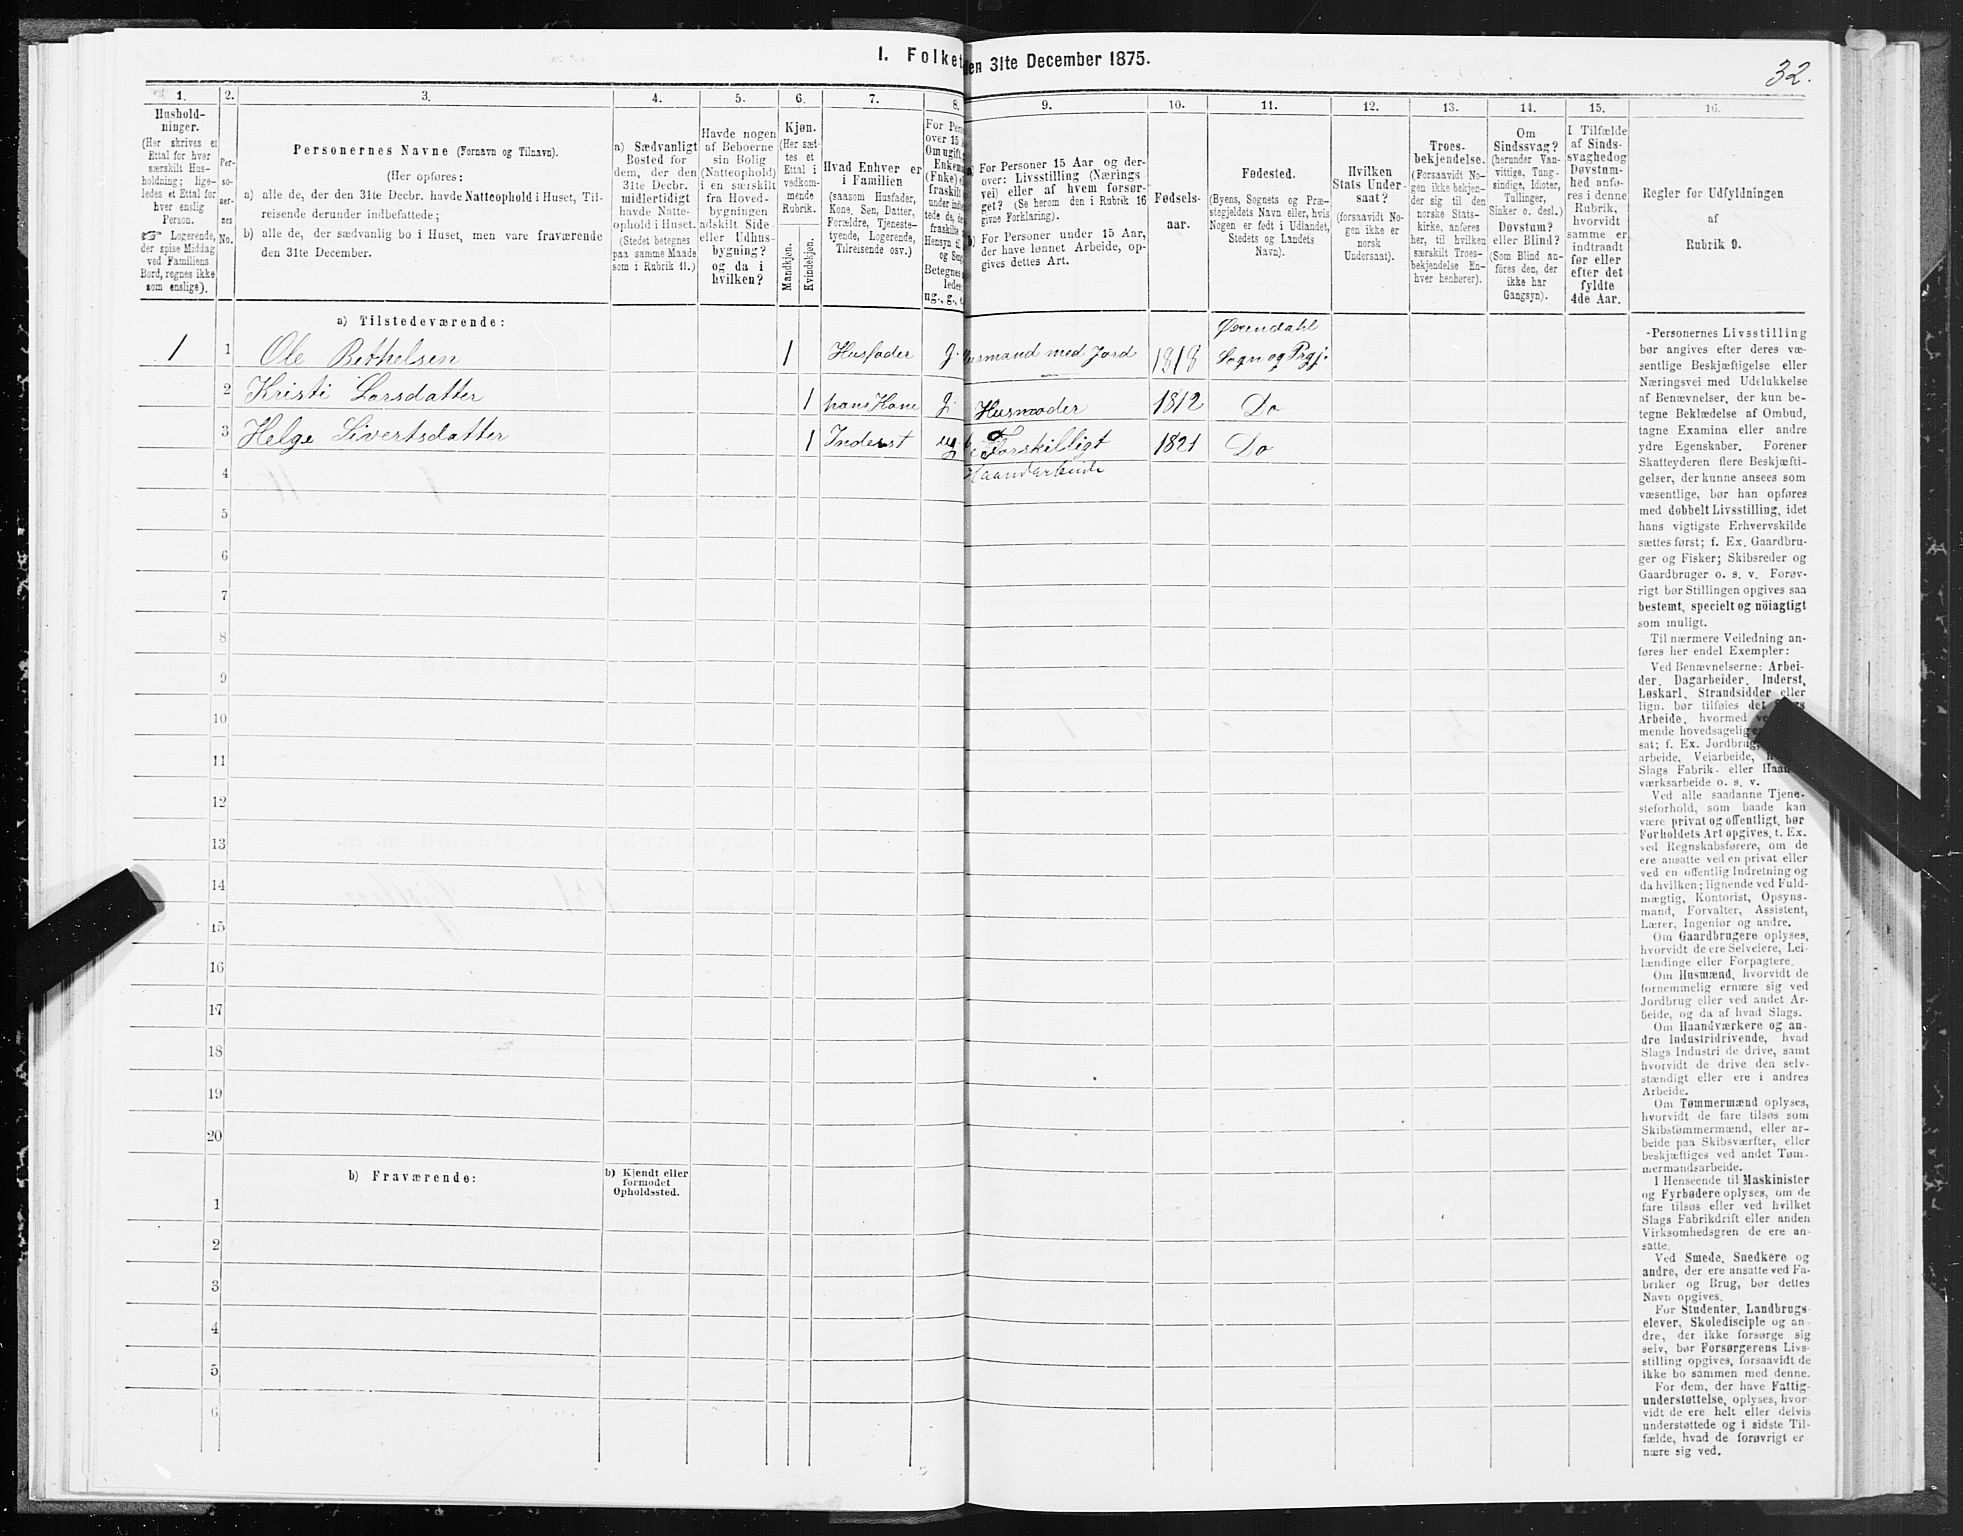 I. Folket
den 31te December 1875.
32.
1.
2.
3.
4.
5.
6.
7.
8.
9.
10.
11.
12.
13.
14.
15.
16.
Hushold-
ninger.
(Her skrives et
Ettal for hver
særskilt Hus-
holdning; lige-
ledes et Ettal for
hver enslig
Person.
☞ Logerende,
der spise Middag
ved Familiens
Bord, regnes ikke
som enslige).
Per-
so-
ner-
nes
No.
Personernes Navne (Fornavn og Tilnavn).
(Her opføres:
a) alle de, der den 31te Decbr. havde Natteophold i Huset, Til-
reisende derunder indbefattede;
b) alle de, der sædvanlig bo i Huset, men vare fraværende
den 31te December.
a) Sædvanligt
Bosted for
dem, der den
31te Decbr.
midlertidigt
havde Natte-
ophold i Huset.
(Stedet betegnes
paa samme Maade
som i Rubrik 11.)
Havde nogen
af Beboerne
sin Bolig
(Natteophold)
i en særskilt
fra Hoved-
bygningen
adskilt Side-
eller Udhus-
bygning?
og da i
hvilken?
Kjøn.
(Her sæt-
tes et
Ettal i
vedkom-
mende
Rubrik.
Mandkjøn.
Kvindekjøn.
Hvad Enhver er
i Familien
(saasom Husfader,
Kone, Søn, Datter,
Forældre, Tjeneste-
tyende, Logerende,
Tilreisende osv.)
For Pers
over 15
Om ugift,
Enkema
(Fnke) e
fraskilt
under indb
tede de, de
fraskilte
Hensyn til
og Sen
Betegnes
lede
ug., g., e
a) For Personer 15 Aar og der-
over: Livsstilling (Nærings-
vei) eller af hvem forsør-
get? (Se herom den i Rubrik 16
givne Forklaring).
b) For Personer under 15 Aar,
der have lønnet Arbeide, op-
gives dettes Art.
Fødsels-
aar.
Fødested.
(Byens, Sognets og Præ-
stegjeldets Navn eller, hvis
Nogen er født i Udlandet,
Stedets og Landets
Navn).
Hvilken
Stats Under-
saat?
(forsaavidt No-
gen ikke er
norsk
Undersaat).
Troes-
bekjendelse.
(Forsaavidt No-
gen ikke bekjen-
der sig til den
norske Stats-
kirke, anføres
her, til hvilken
særskilt Troes-
bekjendelse En-
hver henhører).
Om
Sindssvag?
(herunder Van-
vittige, Tung-
sindige, Idioter,
Tullinger,
Sinker o. desl.)
Døvstum?
eller Blind?
(Som Blind an-
føres den, der
ikke har
Gangsyn).
I Tilfælde
af Sinds-
svaghedog
Døvstum-
hed anfø-
res i denne
Rubrik,
hvorvidt
samme er
indtraadt
før eller
efter det
fyldte
4de Aar.
Regler for Udfyldningen
af
Rubrik 9.
a) Tilstedeværende:
1 1 Ole Bethelsen 1 Husfader g. Husmand med Jord 1818 Øxendahl
Sogn og Prgj.
2 Kristi Larsdatter 1 hans Kone g. Husmoder 1812 Do
3 Helge Sivertsdatter 1 Inderst ug. Forskilligt 1821 Do
Haandarbeide
4
5
6
7
8
9
10
11
12
13
14
15
16
17
18
19
20
b) Fraværende:
b) Kjendt eller
formodet
Opholdssted.
1
2
3
4
5
6
-Personernes Livsstilling
bør angives efter deres væ-
sentlige Beskjæftigelse eller
Næringsvei med Udelukkelse
af Benævnelser, der kun be-
tegne Beklædelse af Ombud,
tagne Examina eller andre
ydre Egenskaber. Forener
Skatteyderen flere Beskjæfti-
gelser, der kunne ansees som
væsentlige, bør han opføres
med dobbelt Livsstilling, idet
hans vigtigste Erhvervskilde
sættes først; f. Ex. Gaardbru-
ger og Fisker; Skibsreder og
Gaardbruger o. s. v. Forøv-
rigt bør Stillingen opgives saa
bestemt, specielt og nöiagtigt
som muligt.
Til nærmere Veiledning an-
føres her endel Exempler:
Ved Benævnelserne: Arbei-
der, Dagarbeider, Inderst,
Løskarl, Strandsidder eller
lign. bør tilføies det Slags
Arbeide, hvormed ve
mende hovedsagelig e
sat; f. Ex. Jordbrug,
arbeide, Veiarbeide, h
Slags Fabrik- eller Haan
værksarbeide o. s. v.
Ved alle saadanne Tjene-
steforhold, som baade kan
være privat og offentligt, bør
Forholdets Art opgives, t. Ex.
ved Regnskabsførere, om de
ere ansatte ved en privat eller
ved en offentlig Indretning og
da hvilken; lignende ved Fuld-
mægtig, Kontorist, Opsyns-
mand, Forvalter, Assistent,
Lærer, Ingeniør og andre.
Om Gaardbrugere oplyses,
hvorvidt de ere Selveiere, Lei-
lændinge eller Forpagtere.
Om Husmænd, hvorvidt de
fornemmelig ernære sig ved
Jordbrug eller ved andet Ar-
beide, og da af hvad Slags.
Om Haandværkere og an-
dre Industridrivende, hvad
Slags Industri de drive, samt
hvorvidt de drive den selv-
stændigt eller ere i andres
Arbeide.
Om Tømmermænd oplyses,
hvorvidt de fare tilsøs som
Skibstømmermænd, eller ar-
beide paa Skibsværfter, eller
beskjæftiges ved andet Tøm-
mermandsarbeide.
I Henseende til Maskinister
og Fyrbødere oplyses, om de
fare tilsøs eller ved hvilket
Slags Fabrikdrift eller anden
Virksomhedsgren de ere an-
satte.
Ved Smede, Snedkere og
andre, der ere ansatte ved Fa-
briker og Brug, bør dettes
Navn opgives.
For Studenter, Landbrugs-
elever, Skoledisciple og an-
dre, der ikke forsørge sig
selv, bør Forsørgerens Livs-
stilling opgives, forsaavidt de
ikke bo sammen med denne.
For dem, der have Fattig-
understøttelse, oplyses, hvor-
vidt de ere helt eller delvis
understøttede og i sidste Til-
fælde, hvad de forøvrigt er
nære sig ved.